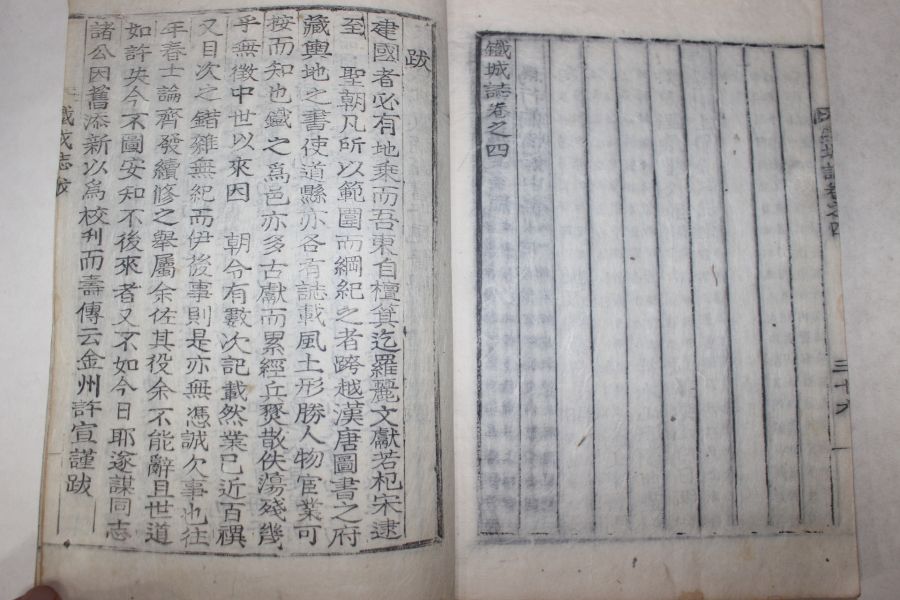 城誌卷之四
鐵城誌卷之四
跋
建國者必有地乘而吾東自檀箕迄羅麗文獻若杞宋逮
至 聖朝凡所以範圍而綱紀之者跨越漢唐圖書之府
藏輿地之書使道縣亦各有誌載風土形勝人物宦業可
按而知也鐵之爲邑亦多古獻而累經兵燹散佚蕩殘幾
乎無徵中世以來因 朝令有數次記載然業已近百禩
又目次之錯雜無紀而伊後事則是亦無憑誠欠事也往
年春士論齊發續修之擧屬余佐其役余不能辭且世道
如許失今不圖安知不後來者又不如今日耶遂謀同志
諸公因舊添新以爲校刊而壽傳云金州許宣謹跋
鐵城志跋